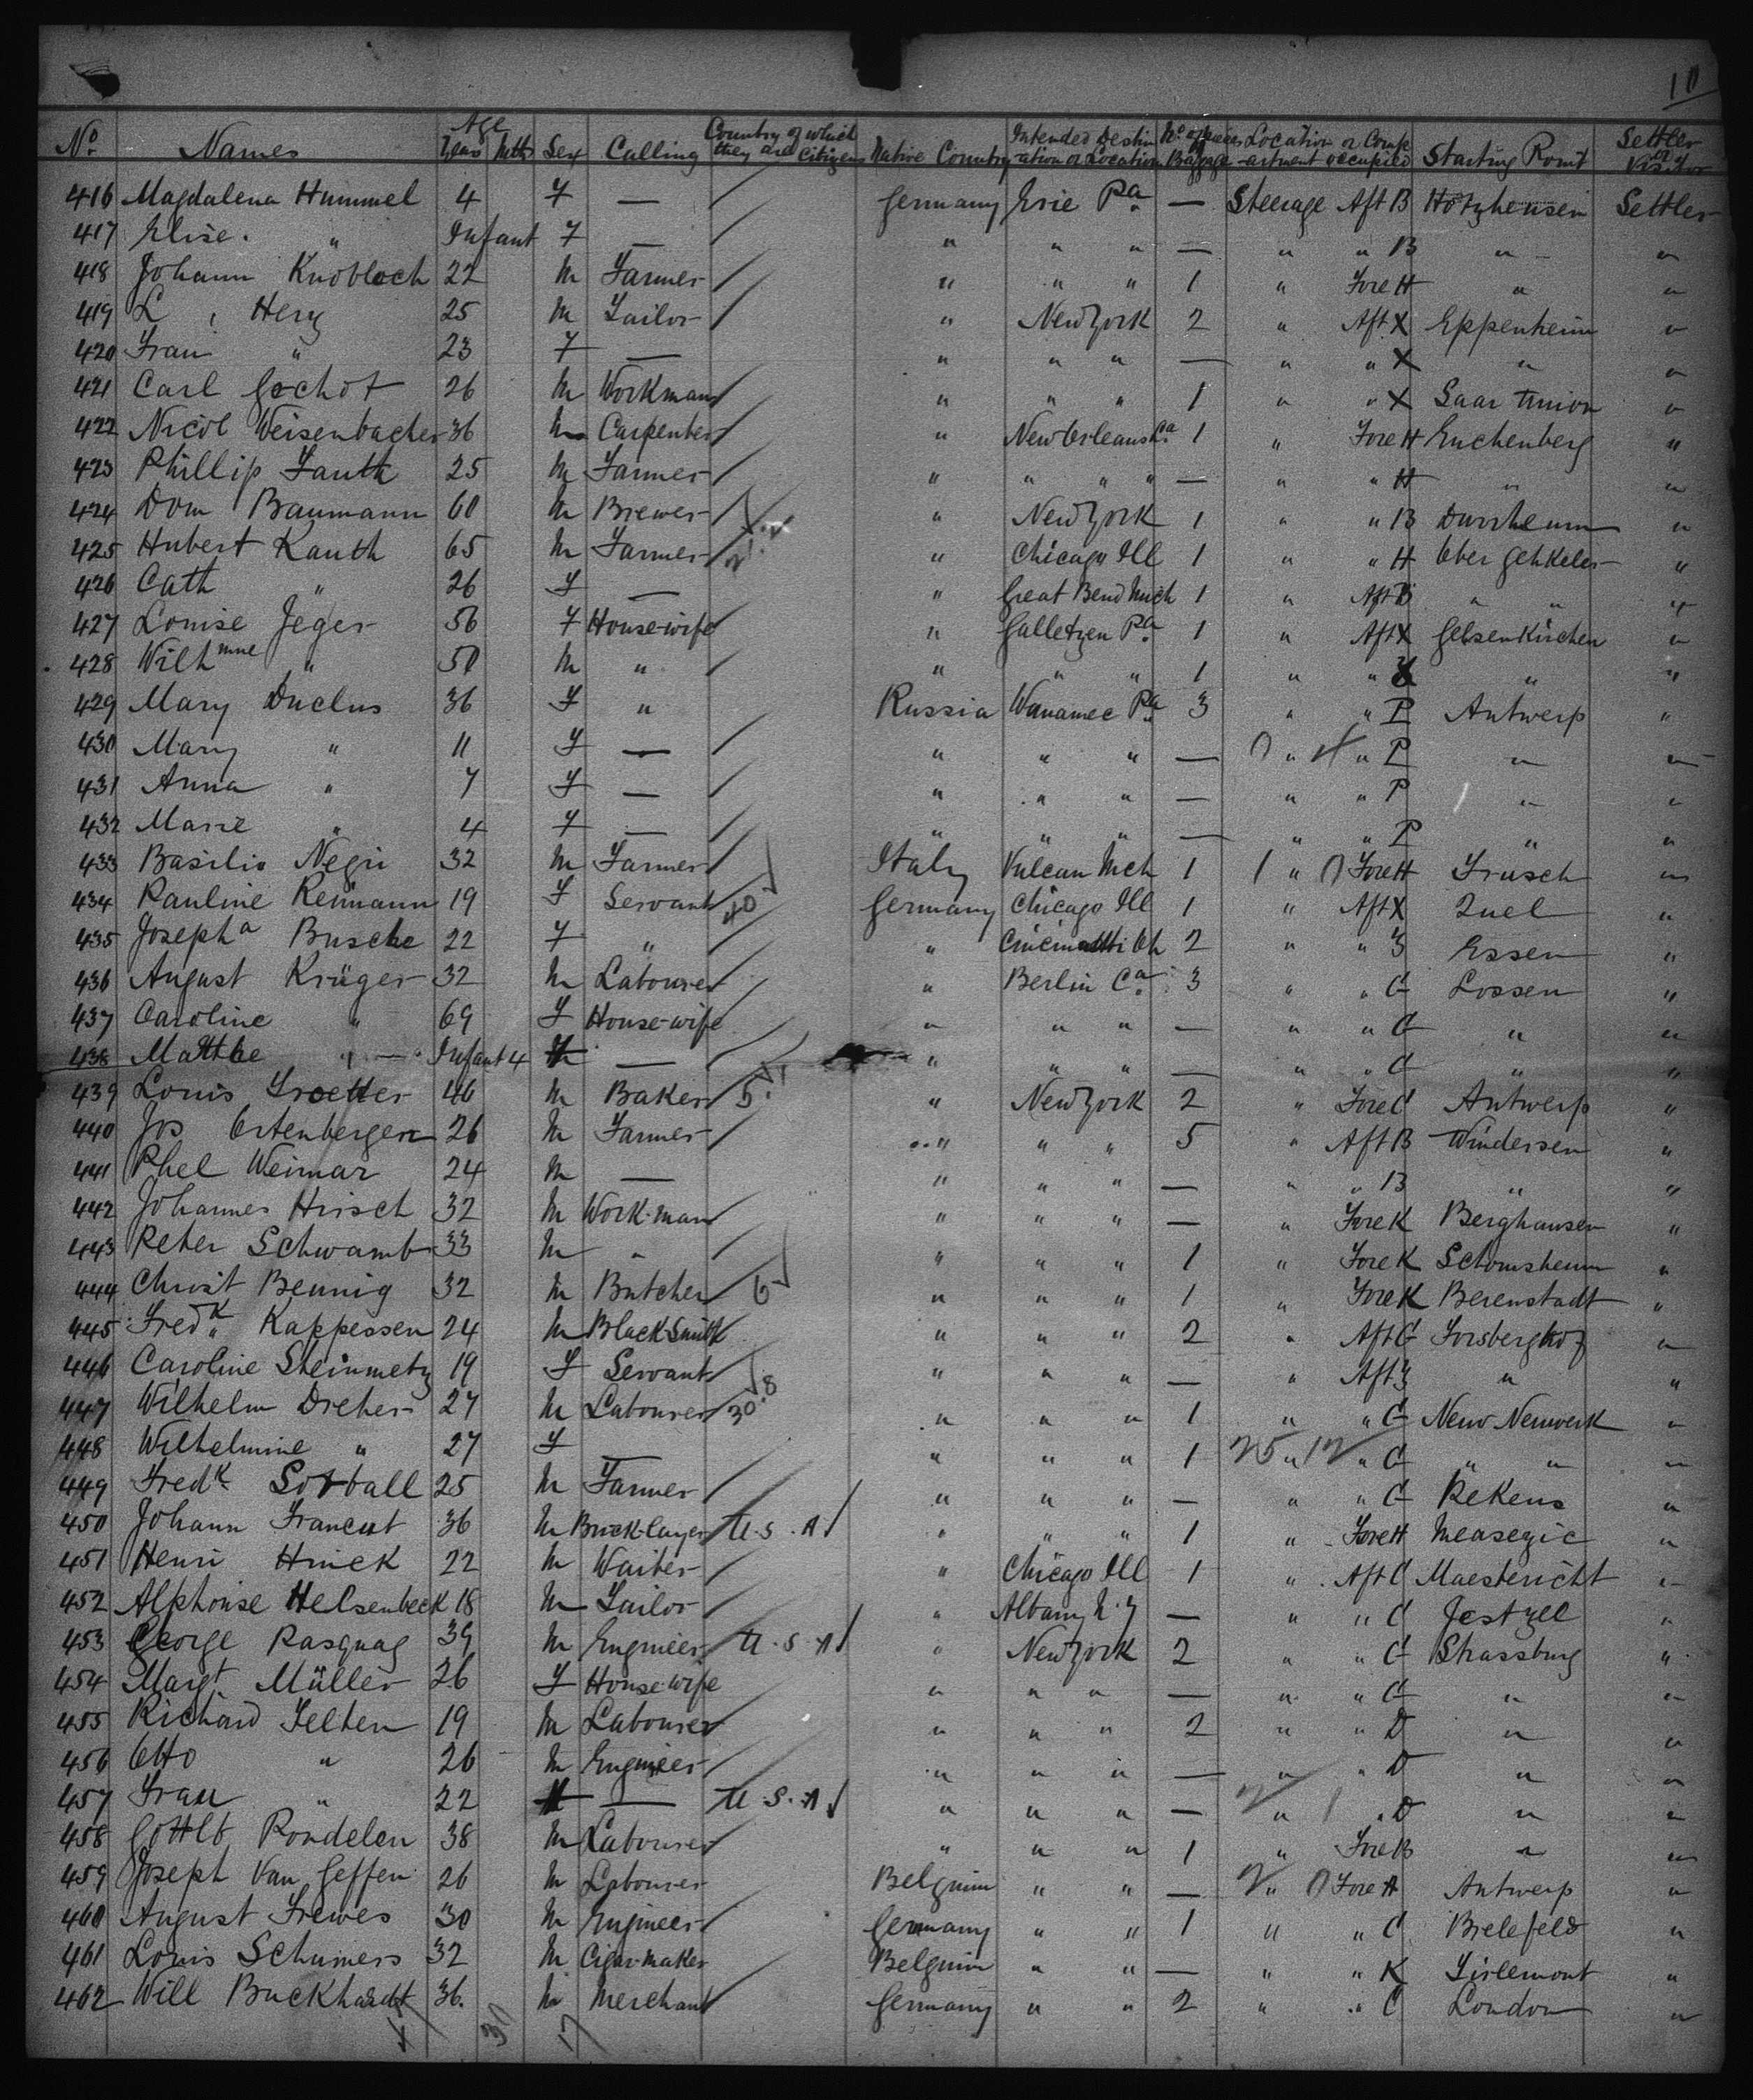 10
No. Names Age Years Mths Sex Calling Country of which they are Citizens Native Country Intended Destination or Location No of Pieces Baggage Location or Compartment occupied Starting Point Settler or Visitor
416 Magdalena Hummel 4 F — Germany Erie Pa. — Steerage Aft B Settler
417 Elise " Infant F — " " " — " " B " "
418 Johann Knobloch 22 M Farmer " " " 1 " Fore H " "
419 L Herz 25 M Tailor " New York 2 " Aft X Eppenheim "
420 Frau " 23 F — " " " — " " X " "
421 Carl Gochot 26 M Workman " " " 1 " " X Saar Union "
422 Nicol Weisenbacher 36 M Carpenter " New Orleans 1 " Fore H Enchenberg "
423 Phillip Fauth 25 M Farmer " " " " — " " H " "
424 Dom Baumann 60 M Brewer " New York 1 " " B Durrheim "
425 Hubert Kauth 65 M Farmer " Chicago Ill 1 " " H Ober "
426 Cath " 26 F — " Great Bend Mich 1 " Aft B " " "
427 Louise Jeger 56 F House-wife " Galletzen Pa. 1 " Aft X Gelsenkirchen "
428 Wilhmne " 50 M " " " " 1 " " X " "
429 Mary Duclus 36 F " Russia Wanamee Pa 3 " " P Antwerp "
430 Mary " 11 F — " " " — " " P " "
431 Anna " 7 F — " " " — " " P " "
432 Marie " 4 F — " " " — " " P " "
433 Basilio Negri 32 M Farmer Italy Vulcan Mch 1 " Fore H Frusch "
434 Pauline Reimann 19 F Servant Germany Chicago Ill 1 " Aft X Zuel "
435 Josepha Busche 22 F " " Cincinatti Oh 2 " " Z Essen "
436 August Krüger 32 M Labourer " Berlin Ca. 3 " " G Lossen "
437 Caroline " 69 F House-wife " " " — " " G " "
438 Matthe " — Infant 4 M — " " " — " " G " "
439 Louis Troetter 46 M Baker " New York 2 " Fore C Antwerp "
440 Jos Ortenberger 26 M Farmer " " " 5 " Aft B Windersen "
441 Phel Weimar 24 M — " " " — " " B " "
442 Johannes Hirsch 32 M Work-man " " " — " Fore K Berghausen "
443 Peter Schwamb 33 M " " " " 1 " Fore K Schomsheim "
444 Christ Bennig 32 M Butcher " " " 1 " Fore K Berenstadt "
445 Fredk Kappessen 24 M Black Smith " " " 2 " Aft G "
446 Caroline Steinmetz 19 F Servant " " " — " Aft Z " "
447 Wilhelm Dreher 27 M Labourer " " " 1 " " G Neuwerk "
448 Wilhelmine " 27 F — " " " 1 " " G " " "
449 Fredk Sotball 25 M Farmer " " " — " " G Rekens "
450 Johann Francut 36 M Brick-layer U.S.A " " " 1 " Fore H Measegic "
451 Henri Hinck 22 M Waiter " Chicago Ill 1 " Aft C Maestericht "
452 Alphonse Helsenbeck 18 M Tailor " Albany N.Y — " " C Jestzel "
453 George Pasquag 39 M Engineer U.S.A " New York 2 " " G Strassburg "
454 Margt Müller 26 F House-wife " " " — " " G " "
455 Richard Felten 19 M Labourer " " " 2 " " D " "
456 Otto " 26 M Engineer " " " — " " D " "
457 Frau " 22 — U.S.A " " " — " " D " "
458 Gottlb Rondelen 38 M Labourer " " " 1 " Fore B " "
459 Joseph Van Geffen 26 M Labourer Belgium " " — " Fore H Antwerp "
460 August Frewes 30 M Engineer Germany " " 1 " " C Bielefeld "
461 Louis Schumers 32 M Cigar-maker Belgium " " — " " K Tirlemont "
462 Will Buckhardt 36 M Merchant Germany " " 2 " " C London "